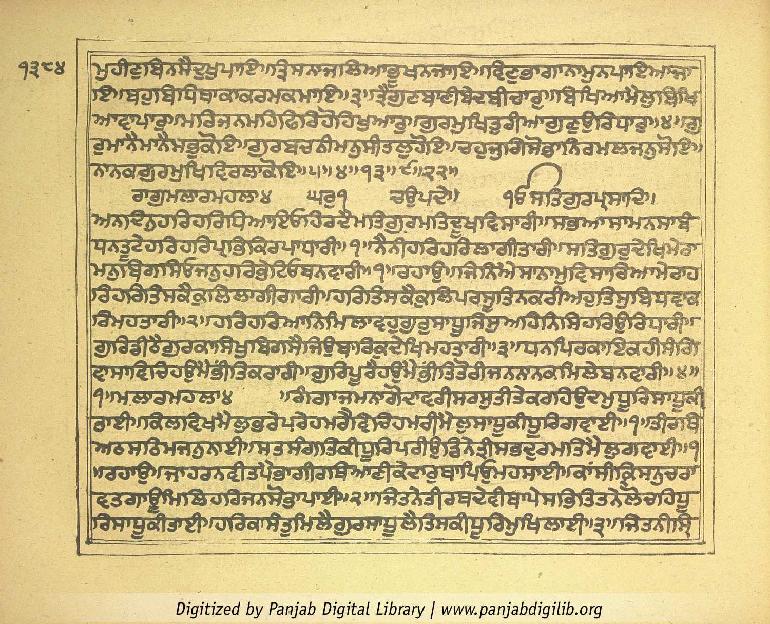 ੧੩੮੪
ਮੁਹੀਣਾਬਿਨਸੈਦੁਖੁਪਾਇ॥ਤ੍ਰਿਸਨਾਜਲਿਆਭੂਖਨਜਾਇ॥ਵਿਣੁਭਾਗਾਨਾਮੁਨਪਾਇਆਜਾ
ਇ॥ਬਹੁਬਿਧਿਥਾਕਾਕਰਮਕਮਾਇ॥੩॥ਤ੍ਰੈਗੁਣਬਾਣੀਬੇਦਬੀਚਾਰੁ॥ਬਿਖਿਆਮੈਲੁਬਿਖਿ
ਆਵਾਪਾਰੁ॥ਮਰਿਜਨਮਹਿਫਿਰਿਹੋਹਿਖੁਆਰੁ॥ਗੁਰਮੁਖਿਤੁਰੀਆਗੁਣੁਉਰਿਧਾਰੁ॥੪॥ਗੁ
ਰੁਮਾਨੈਮਾਨੈਸਭੁਕੋਇ॥ਗੁਰਬਚਨੀਮਨੁਸੀਤਲੁਹੋਇ॥ਚਹੁਜੁਗਿਸੋਭਾਨਿਰਮਲਜਨੁਸੋਇ॥
ਨਾਨਕਗੁਰਮੁਖਿਵਿਰਲਾਕੋਇ॥੫॥੪॥੧੩॥੯॥੨੨॥
ਰਾਗੁਮਲਾਰਮਹਲਾ੪ ਘਰੁ੧ ਚਉਪਦੇ॥ ੴਸਤਿਗੁਰਪ੍ਰਸਾਦਿ॥
ਅਨਦਿਨੁਹਰਿਹਰਿਧਿਆਇਓਹਿਰਦੈਮਤਿਗੁਰਮਤਿਦੂਖਵਿਸਾਰੀ॥ਸਭਆਸਾਮਨਸਾਬੰ
ਧਨਤੂਟੇਹਰਿਹਰਿਪ੍ਰਭਿਕਿਰਪਾਧਾਰੀ॥੧॥ਨੈਨੀਹਰਿਹਰਿਲਾਗੀਤਾਰੀ॥ਸਤਿਗੁਰੁਦੇਖਿਮੇਰਾ
ਮਨੁਬਿਗਸਿਓਜਨੁਹਰਿਭੇਟਿਓਬਨਵਾਰੀ॥੧॥ਰਹਾਉ॥ਜਿਨਿਐਸਾਨਾਮੁਵਿਸਾਰਿਆਮੇਰਾਹ
ਰਿਹਰਿਤਿਸਕੈਕੁਲਿਲਾਗੀਗਾਰੀ॥ਹਰਿਤਿਸਕੈਕੁਲਿਪਰਸੂਤਿਨਕਰੀਅਹੁਤਿਸੁਬਿਧਵਾਕ
ਰਿਮਹਤਾਰੀ॥੨॥ਹਰਿਹਰਿਆਨਿਮਿਲਾਵਹੁਗੁਰੁਸਾਧੂਜਿਸੁਅਹਿਨਿਸਿਹਰਿਉਰਿਧਾਰੀ॥
ਗੁਰਿਡੀਠੈਗੁਰਕਾਸਿਖੁਬਿਗਸੈਜਿਉਬਾਰਿਕੁਦੇਖਿਮਹਤਾਰੀ॥੩॥ਧਨਪਿਰਕਾਇਕਹੀਸੰਗਿ
ਵਾਸਾਵਿਚਿਹਉਮੈਭੀਤਿਕਰਾਰੀ॥ਗੁਰਿਪੂਰੈਹਉਮੈਭੀਤਿਤੋਰੀਜਨਨਾਨਕਮਿਲੇਬਨਵਾਰੀ॥੪॥
੧॥ਮਲਾਰਮਹਲਾ੪ ॥ਗੰਗਾਜਮੁਨਾਗੋਦਾਵਰੀਸਰਸੁਤੀਤੇਕਰਹਿਉਦਮੁਧੂਰਿਸਾਧੂਕੀ
ਤਾਈ॥ਕਿਲਵਿਖਮੈਲੁਭਰੇਪਰੇਹਮਰੈਵਿਚਿਹਮਰੀਮੈਲੁਸਾਧੂਕੀਧੂਰਿਗਵਾਈ॥੧॥ਤੀਰਥਿ
ਅਠਸਠਿਮਜਨੁਨਾਈ॥ਸਤਸੰਗਤਿਕੀਧੂਰਿਪਰੀਉਡਿਨੇਤ੍ਰੀਸਭਦੁਰਮਤਿਮੈਲੁਗਵਾਈ॥੧
॥ਰਹਾਉ॥ਜਾਹਰਨਵੀਤਪੈਭਾਗੀਰਥਿਆਣੀਕੇਦਾਰੁਥਾਪਿਓਮਹਸਾਈ॥ਕਾਂਸੀਕ੍ਰਿਸਨੁਚਰਾ
ਵਤਗਾਊਮਿਲਿਹਰਿਜਨਸੋਭਾਪਾਈ॥੨॥ਜਿਤਨੇਤੀਰਥਦੇਵੀਥਾਪੇਸਭਿਤਿਤਨੇਲੋਚਹਿਧੂ
ਰਿਸਾਧੂਕੀਤਾਈ॥ਹਰਿਕਾਸੰਤੁਮਿਲੈਗੁਰਸਾਧੂਲੈਤਿਸਕੀਧੂਰਿਮੁਖਿਲਾਈ॥੩॥ਜਿਤਨੀਸ੍ਰਿ
Digitized by Panjab Digital Library | www.panjabdigilib.org